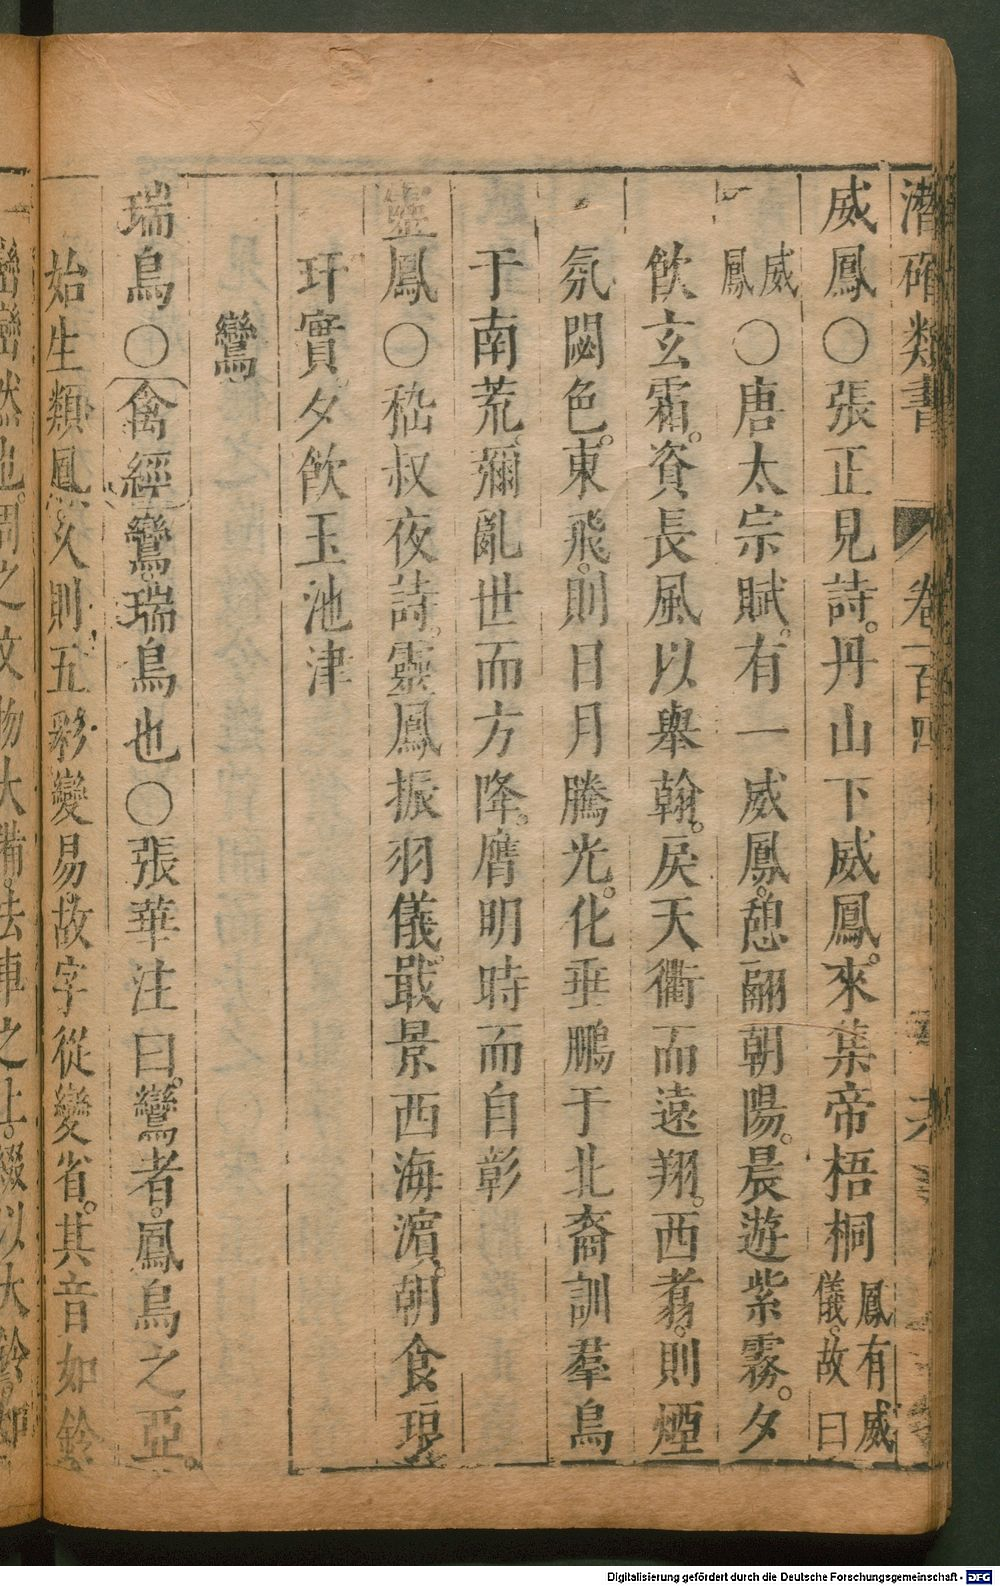 潛確類書 卷一百四
威鳳○張正見詩。丹山下威鳳。來集帝梧桐鳳有威儀。故曰
威鳳○唐太宗賦。有一威鳳。憩翮朝陽。晨遊紫霧。夕
飲玄霜。資長風以舉翰。戾天衢而遠翔。西翥。則煙
氛閟色。東飛。則日月騰光。化垂鵬于北裔訓羣鳥
于南荒。彌亂世而方降。膺明時而自彰
靈鳳○嵇叔夜詩。靈鳳振羽儀。戢景西海濱。朝食琅
玕實。夕飲玉池津
鸞
瑞鳥○禽經鸞。瑞鳥也○張華注曰。鸞者。鳳鳥之亞。
始生類鳳。久則五彩變易。故字從變省。其音如鈴
巒巒然也。周之文物大備。法車之上。綴以大鈴如
Digitalisierung gefördert durch die Deutsche Forschungsgemeinschaft - DFG